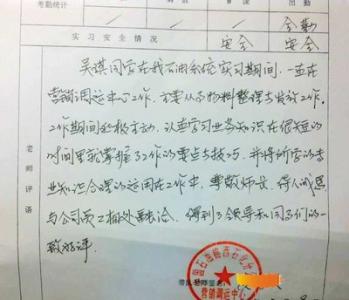 考勤统计 出勤
全勤
实习安全情况 安全 安全
老师评语
吴琪同学在我石油系统实习期间,一直在
营销调运中心工作,主要从事物料整理与发放工作。
工作期间积极主动,认真学习业务知识,在很短的
时间里就掌握了工作的要点与技巧,并将所学的专
业知识合理的运用在工作中,尊敬师长,待人诚恳
与公司员工相处融洽,得到了领导和同事们的一
致好评。
营销调运中心